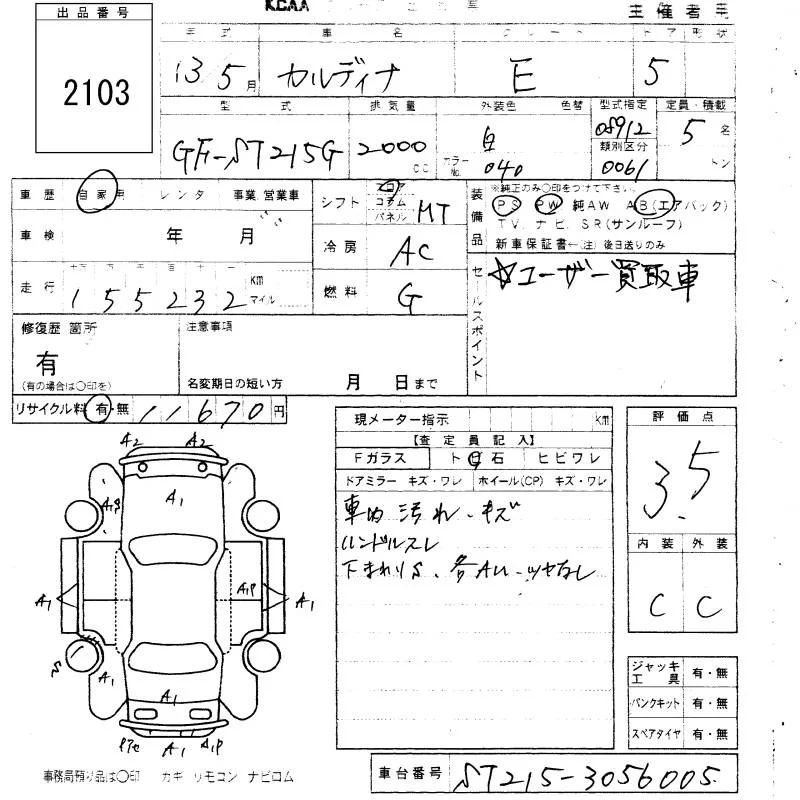 出品番号
2103
KCAA
主催者
年式 車名 グレード ドア 形状
13 5月 カルディナ E 5
型式 排気量 外装色 色替 型式指定 定員・積載
GF-ST215G 2000 CC 白 カラーNo. 040 08912 類別区分 0061 5名 トン
車歴 自家用 レンタ 事業 営業車
車検 年 月
走行 155232 KM マイル
シフト フロア コラム パネル MT
冷房 AC
燃料 G
装備品 ※純正のみ○印をつけて下さい
PS PW 純AW AB(エアバック)
TV ナビ SR(サンルーフ)
新車保証書←(注)後日送りのみ
セールスポイント
☆ユーザー買取車
修復歴 箇所
有
(有の場合は○印を)
注意事項
名変期日の短い方 月 日まで
リサイクル料 有・無 11670円
現メーター指示 KM
【査定員記入】
Fガラス ト 石 ヒビワレ
ドアミラー キズ・ワレ ホイール(CP) キズ・ワレ
車内汚れ・キズ
ハンドルスレ
下まわりS、各AU・ツヤなし
評価点
3.5
内装 外装
C C
A2 A2
A1
A1P
A1P
A1 A1
S
A1 A1
A1 A1P
ジャッキ工具 有・無
パンクキット 有・無
スペアタイヤ 有・無
事務局預り品は○印 カギ リモコン ナビロム
車台番号 ST215-3056005